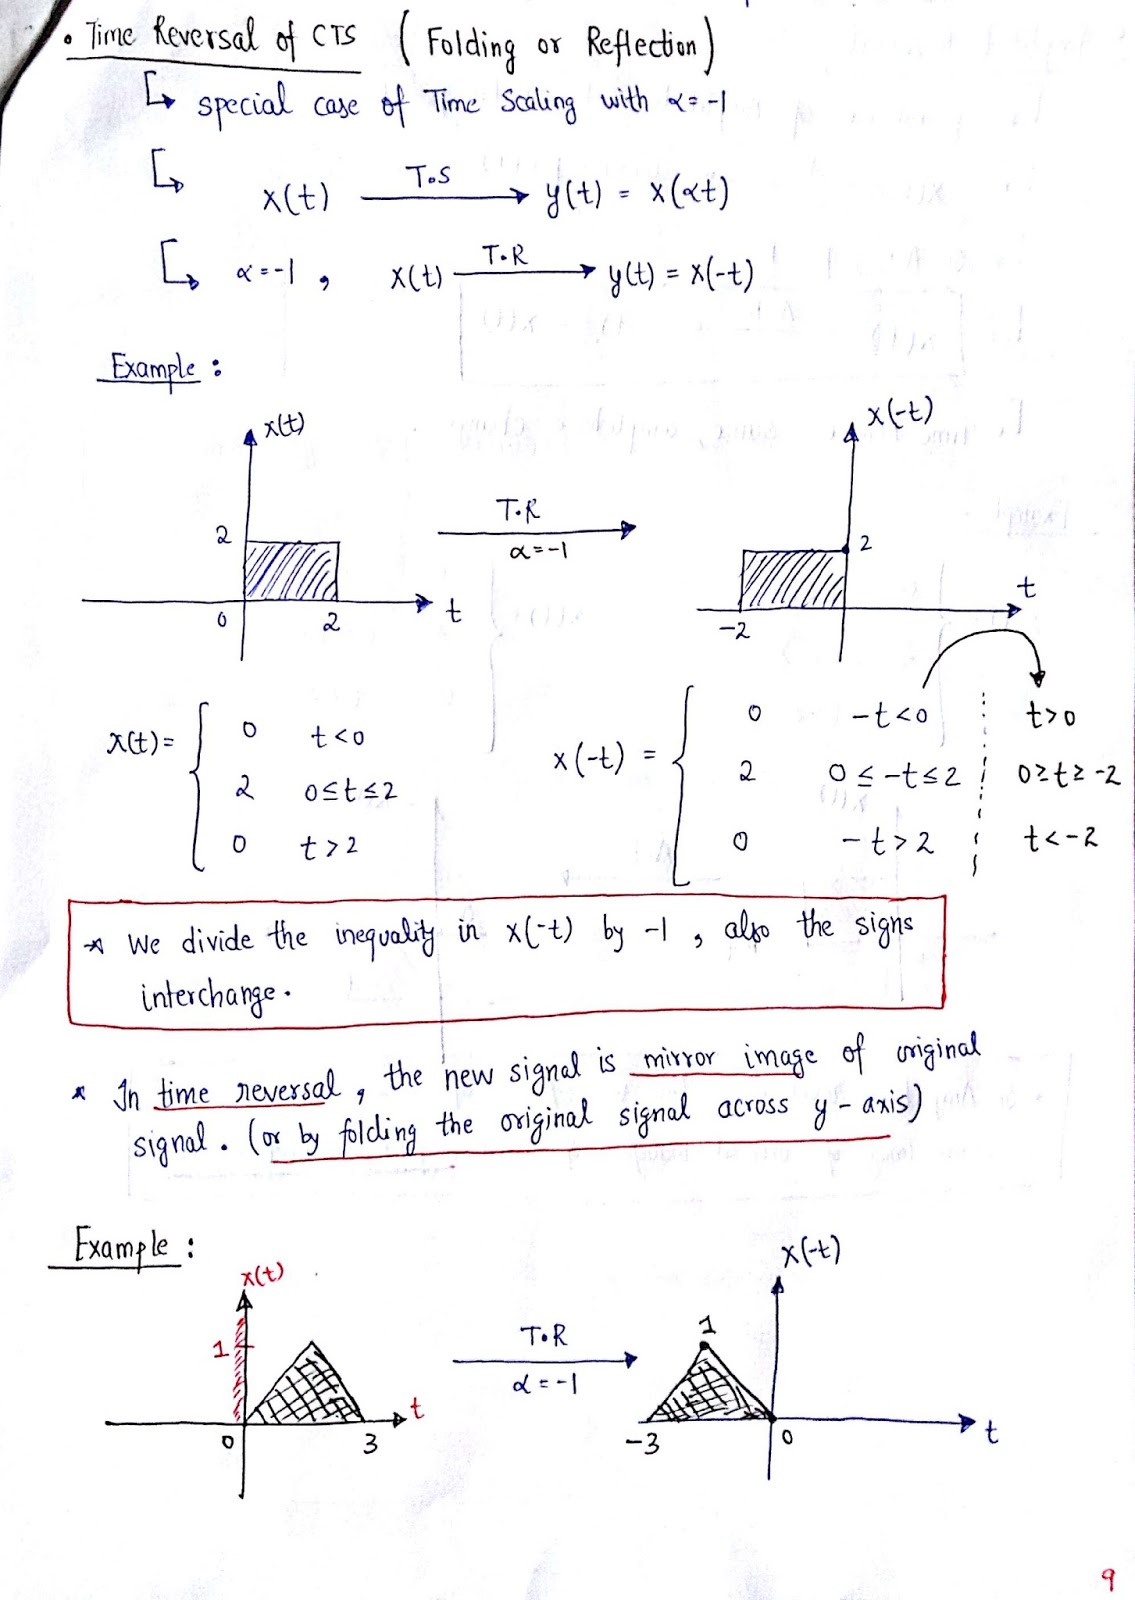 • Time Reversal of CTS (Folding or Reflection)
↳ special case of Time Scaling with α=-1
↳ x(t) T.S → y(t) = x(αt)
↳ α=-1 , x(t) T.R → y(t) = x(-t)
Example :
x(t)
x(-t)
2
T.R
α=-1
2
t
t
0
2
-2
x(t)= { 0 t<0
2 0≤t≤2
0 t>2
x(-t) = { 0 -t<0 t>0
2 0≤-t≤2 0≥t≥-2
0 -t>2 t<-2
* We divide the inequality in x(-t) by -1 , also the signs
interchange.
* In time reversal, the new signal is mirror image of original
signal. (or by folding the original signal across y-axis)
Example :
x(t)
x(-t)
1
T.R
α=-1
1
t
t
0
3
-3
0
9